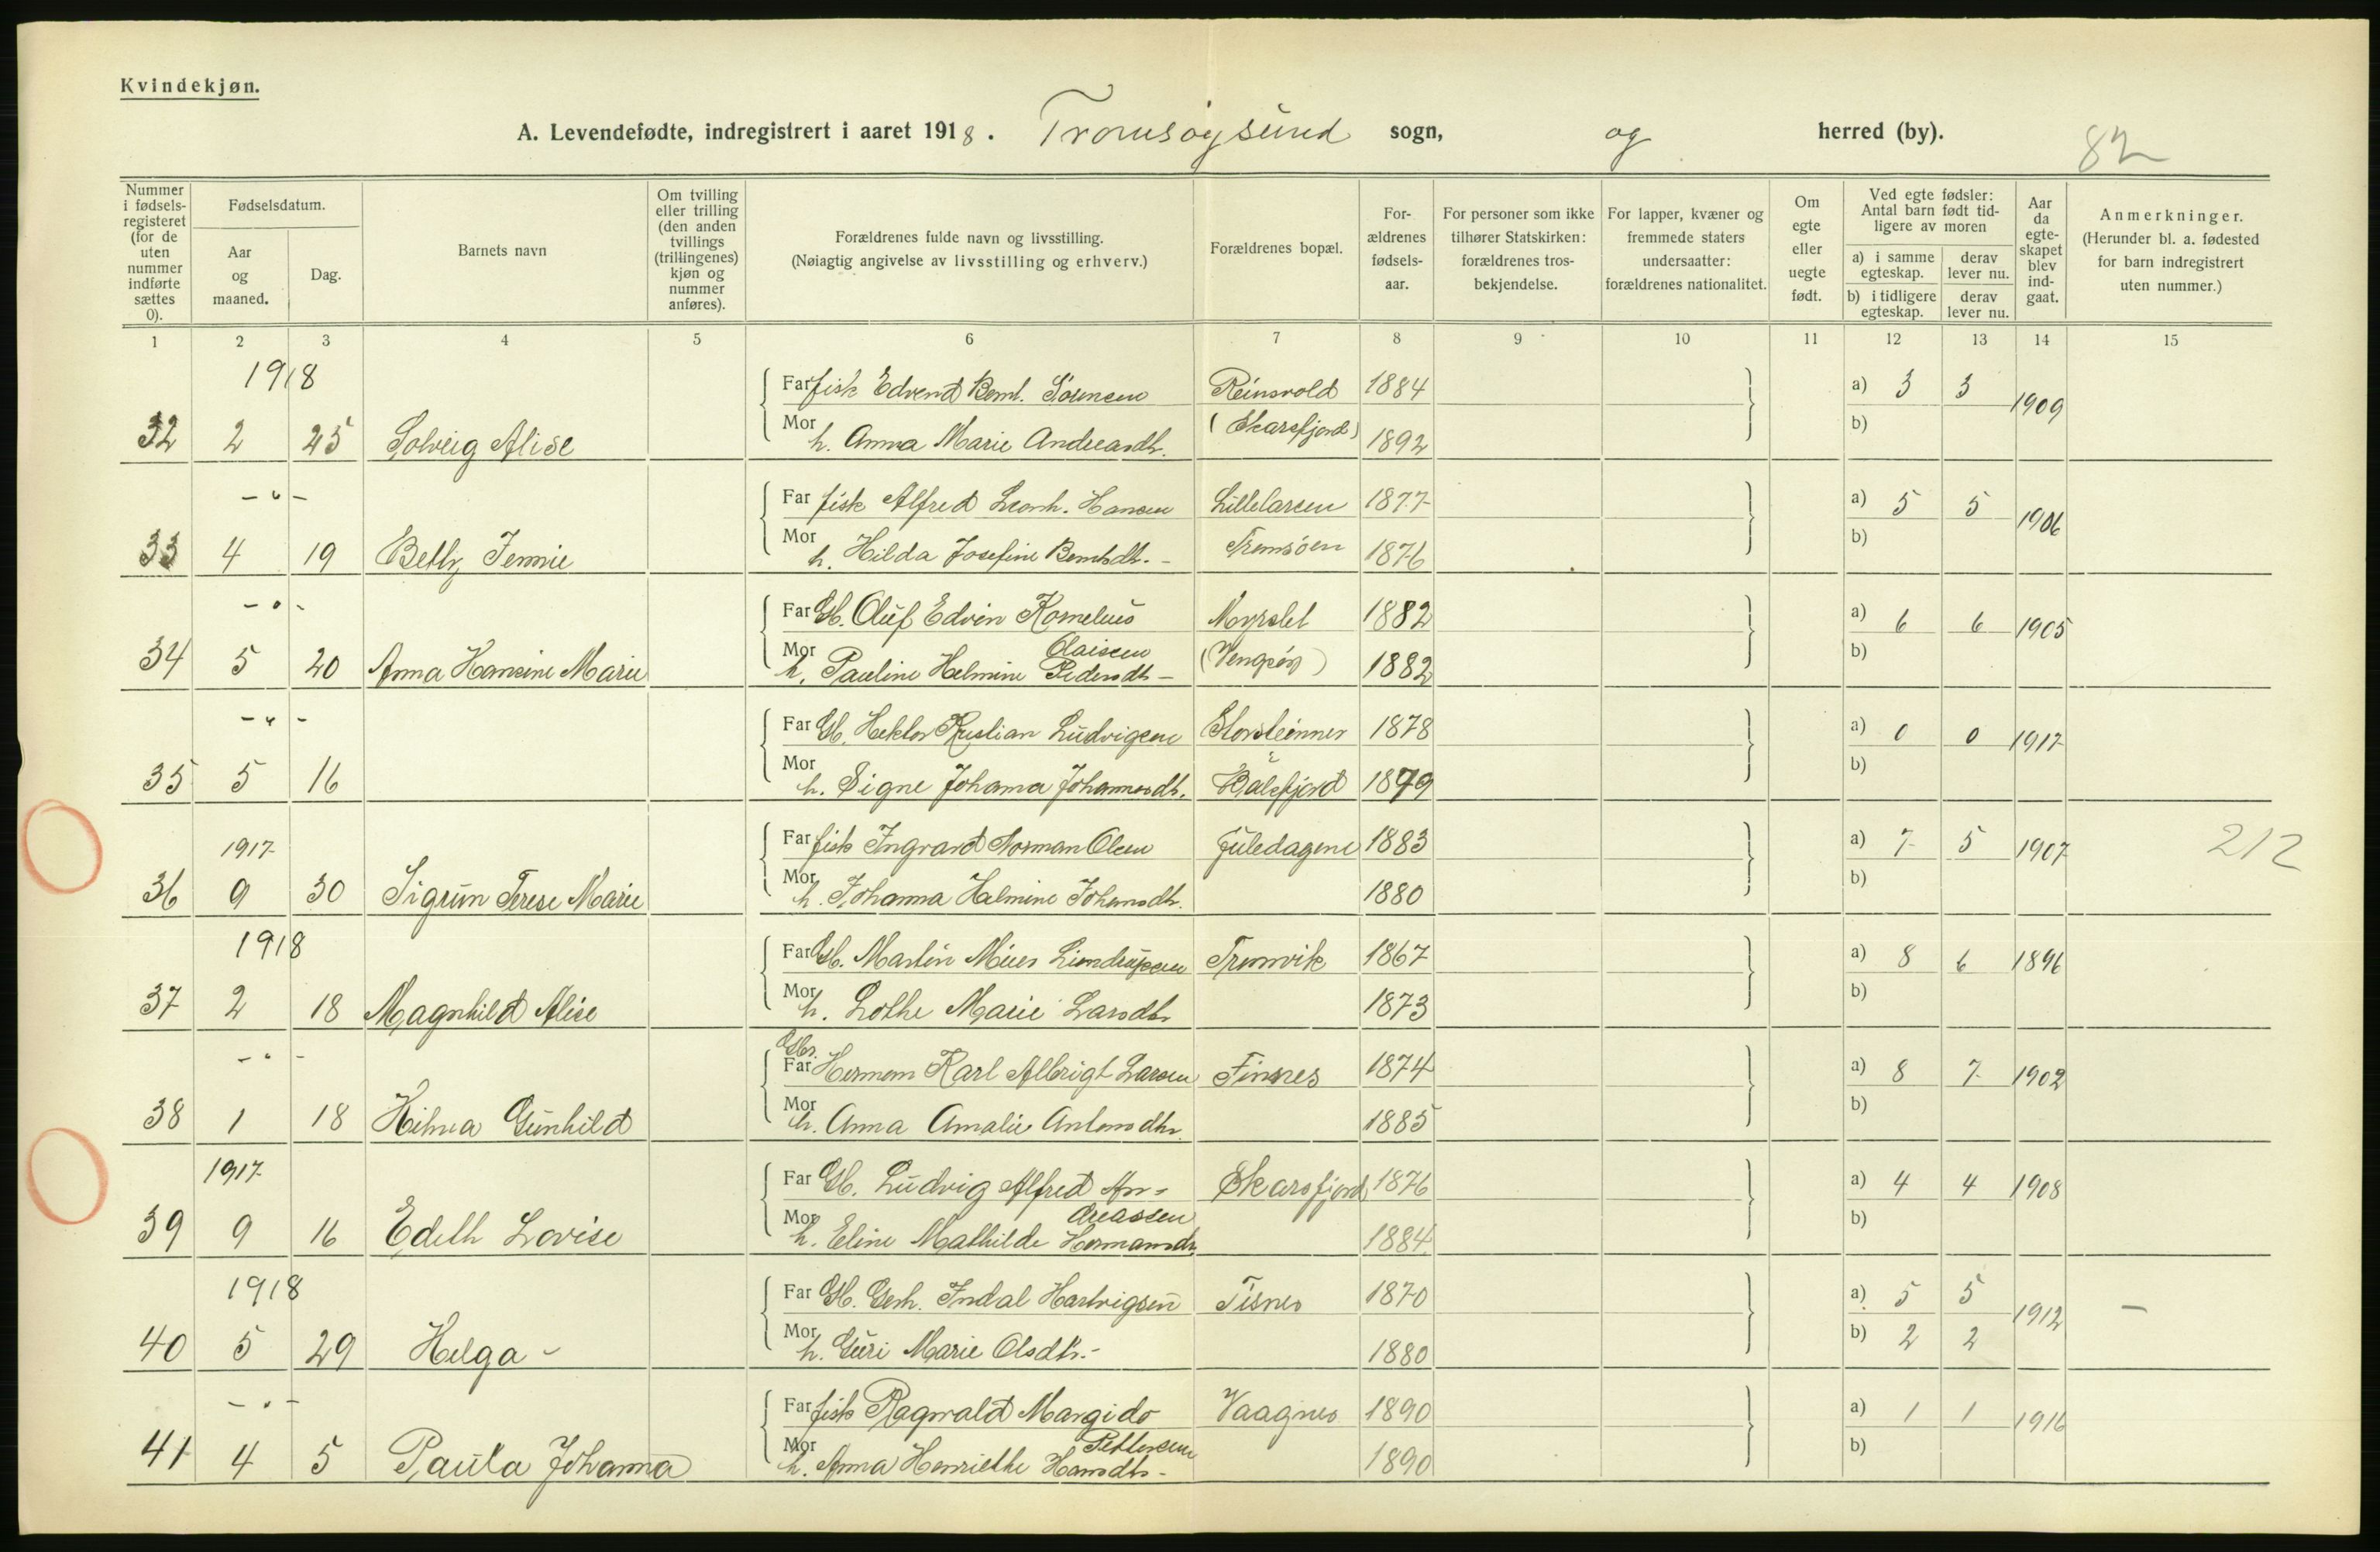 Kvindekjøn.
A. Levendefødte, indregistrert i aaret 1918. Tromsøysund sogn, og herred (by). 82
Nummer i fødselsregisteret (for de uten nummer indførte sættes 0).
Fødselsdatum.
Aar og maaned.
Dag.
Barnets navn
Om tvilling eller trilling (den anden tvillings (trillingenes) kjøn og nummer anføres).
Forældrenes fulde navn og livsstilling.
(Nøiagtig angivelse av livsstilling og erhverv.)
Forældrenes bopæl.
Forældrenes fødselsaar.
For personer som ikke tilhører Statskirken: forældrenes trosbekjendelse.
For lapper, kvæner og fremmede staters undersaatter: forældrenes nationalitet.
Om egte eller uegte født.
Ved egte fødsler: Antal barn født tidligere av moren
a) i samme egteskap.
derav lever nu.
b) i tidligere egteskap.
derav lever nu.
Aar da egteskapet blev indgaat.
Anmerkninger.
(Herunder bl. a. fødested for barn indregistrert uten nummer.)
1 2 3 4 5 6 7 8 9 10 11 12 13 14 15
1918
Far fisk Edvend Bernt. Sørensen Reinsvold 1884 a) 3 3 1909
32 2 25 Solveig Alise Mor h. Anna Marie Andreasdtr. (Skarsfjord) 1892 b)
-"-
Far fisk Alfred Leonh. Hansen Lillelarsen 1877 a) 5 5 1906
33 4 19 Betly Jennie Mor h. Hilda Josefine Berntsdtr. - Tromsøen 1876 b)
-"-
Far Gb. Oluf Edvin Kornelius Myrslet 1882 a) 6 6 1905
Olaisen
34 5 20 Anna Hansine Marie Mor h. Pauline Helmine Pedersdtr - (Vengsøy) 1882 b)
-"-
Far Gb. Hektor Kristian Ludvigsen Storsteinnes 1878 a) 0 0 1917
35 5 16 Mor h. Signe Johanna Johannesdtr. Balsfjord 1879 b)
1917
Far fisk Ingvard Norman Olsen Juledagene 1883 a) 7 5 1907 212
36 9 30 Sigrun Terese Marie Mor h. Johanna Halmine Johansdtr. 1880 b)
1918
Far Gb. Martin Meier Lindrupsen Tromvik 1867 a) 8 6 1896
37 2 18 Magnhild Alise Mor h. Lothe Marie Larsdtr 1873 b)
-"-
Gbr.
Far Hermann Karl Albrigt Larsen Finnes 1874 a) 8 7 1902
38 1 18 Hilma Gunhild Mor h. Anna Amalie Antonsdtr. 1885 b)
1917
Far Gb. Ludvig Alfred An= Skarsfjord 1876 a) 4 4 1908
dreassen
39 9 16 Edith Lovise Mor h. Eline Mathilde Hermansdtr. 1884 b)
1918
Far Gb. Gerh. Indal Hartvigsen Tisnes 1870 a) 5 5 1912 -
40 5 29 Helga - Mor h. Guri Marie Olsdtr. - 1880 b) 2 2
-"-
Far fisk Ragnvald Margido Vaagnes 1890 a) 1 1 1916
Pettersen
41 4 5 Paula Johanna Mor h. Anna Henriette Hansdtr - 1890 b)